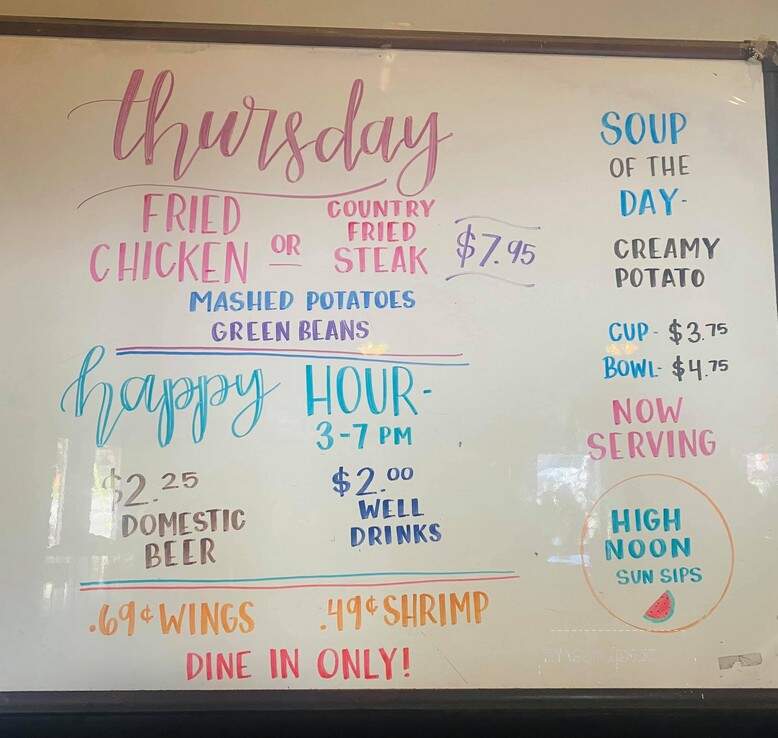 thursday
FRIED CHICKEN OR COUNTRY FRIED STEAK $7.95
MASHED POTATOES
GREEN BEANS
happy HOUR-
3-7 PM
$2.25
DOMESTIC
BEER
$2.00
WELL
DRINKS
.69¢ WINGS .49¢ SHRIMP
DINE IN ONLY!
SOUP
OF THE
DAY-
CREAMY
POTATO
CUP- $3.75
BOWL- $4.75
NOW
SERVING
HIGH
NOON
SUN SIPS